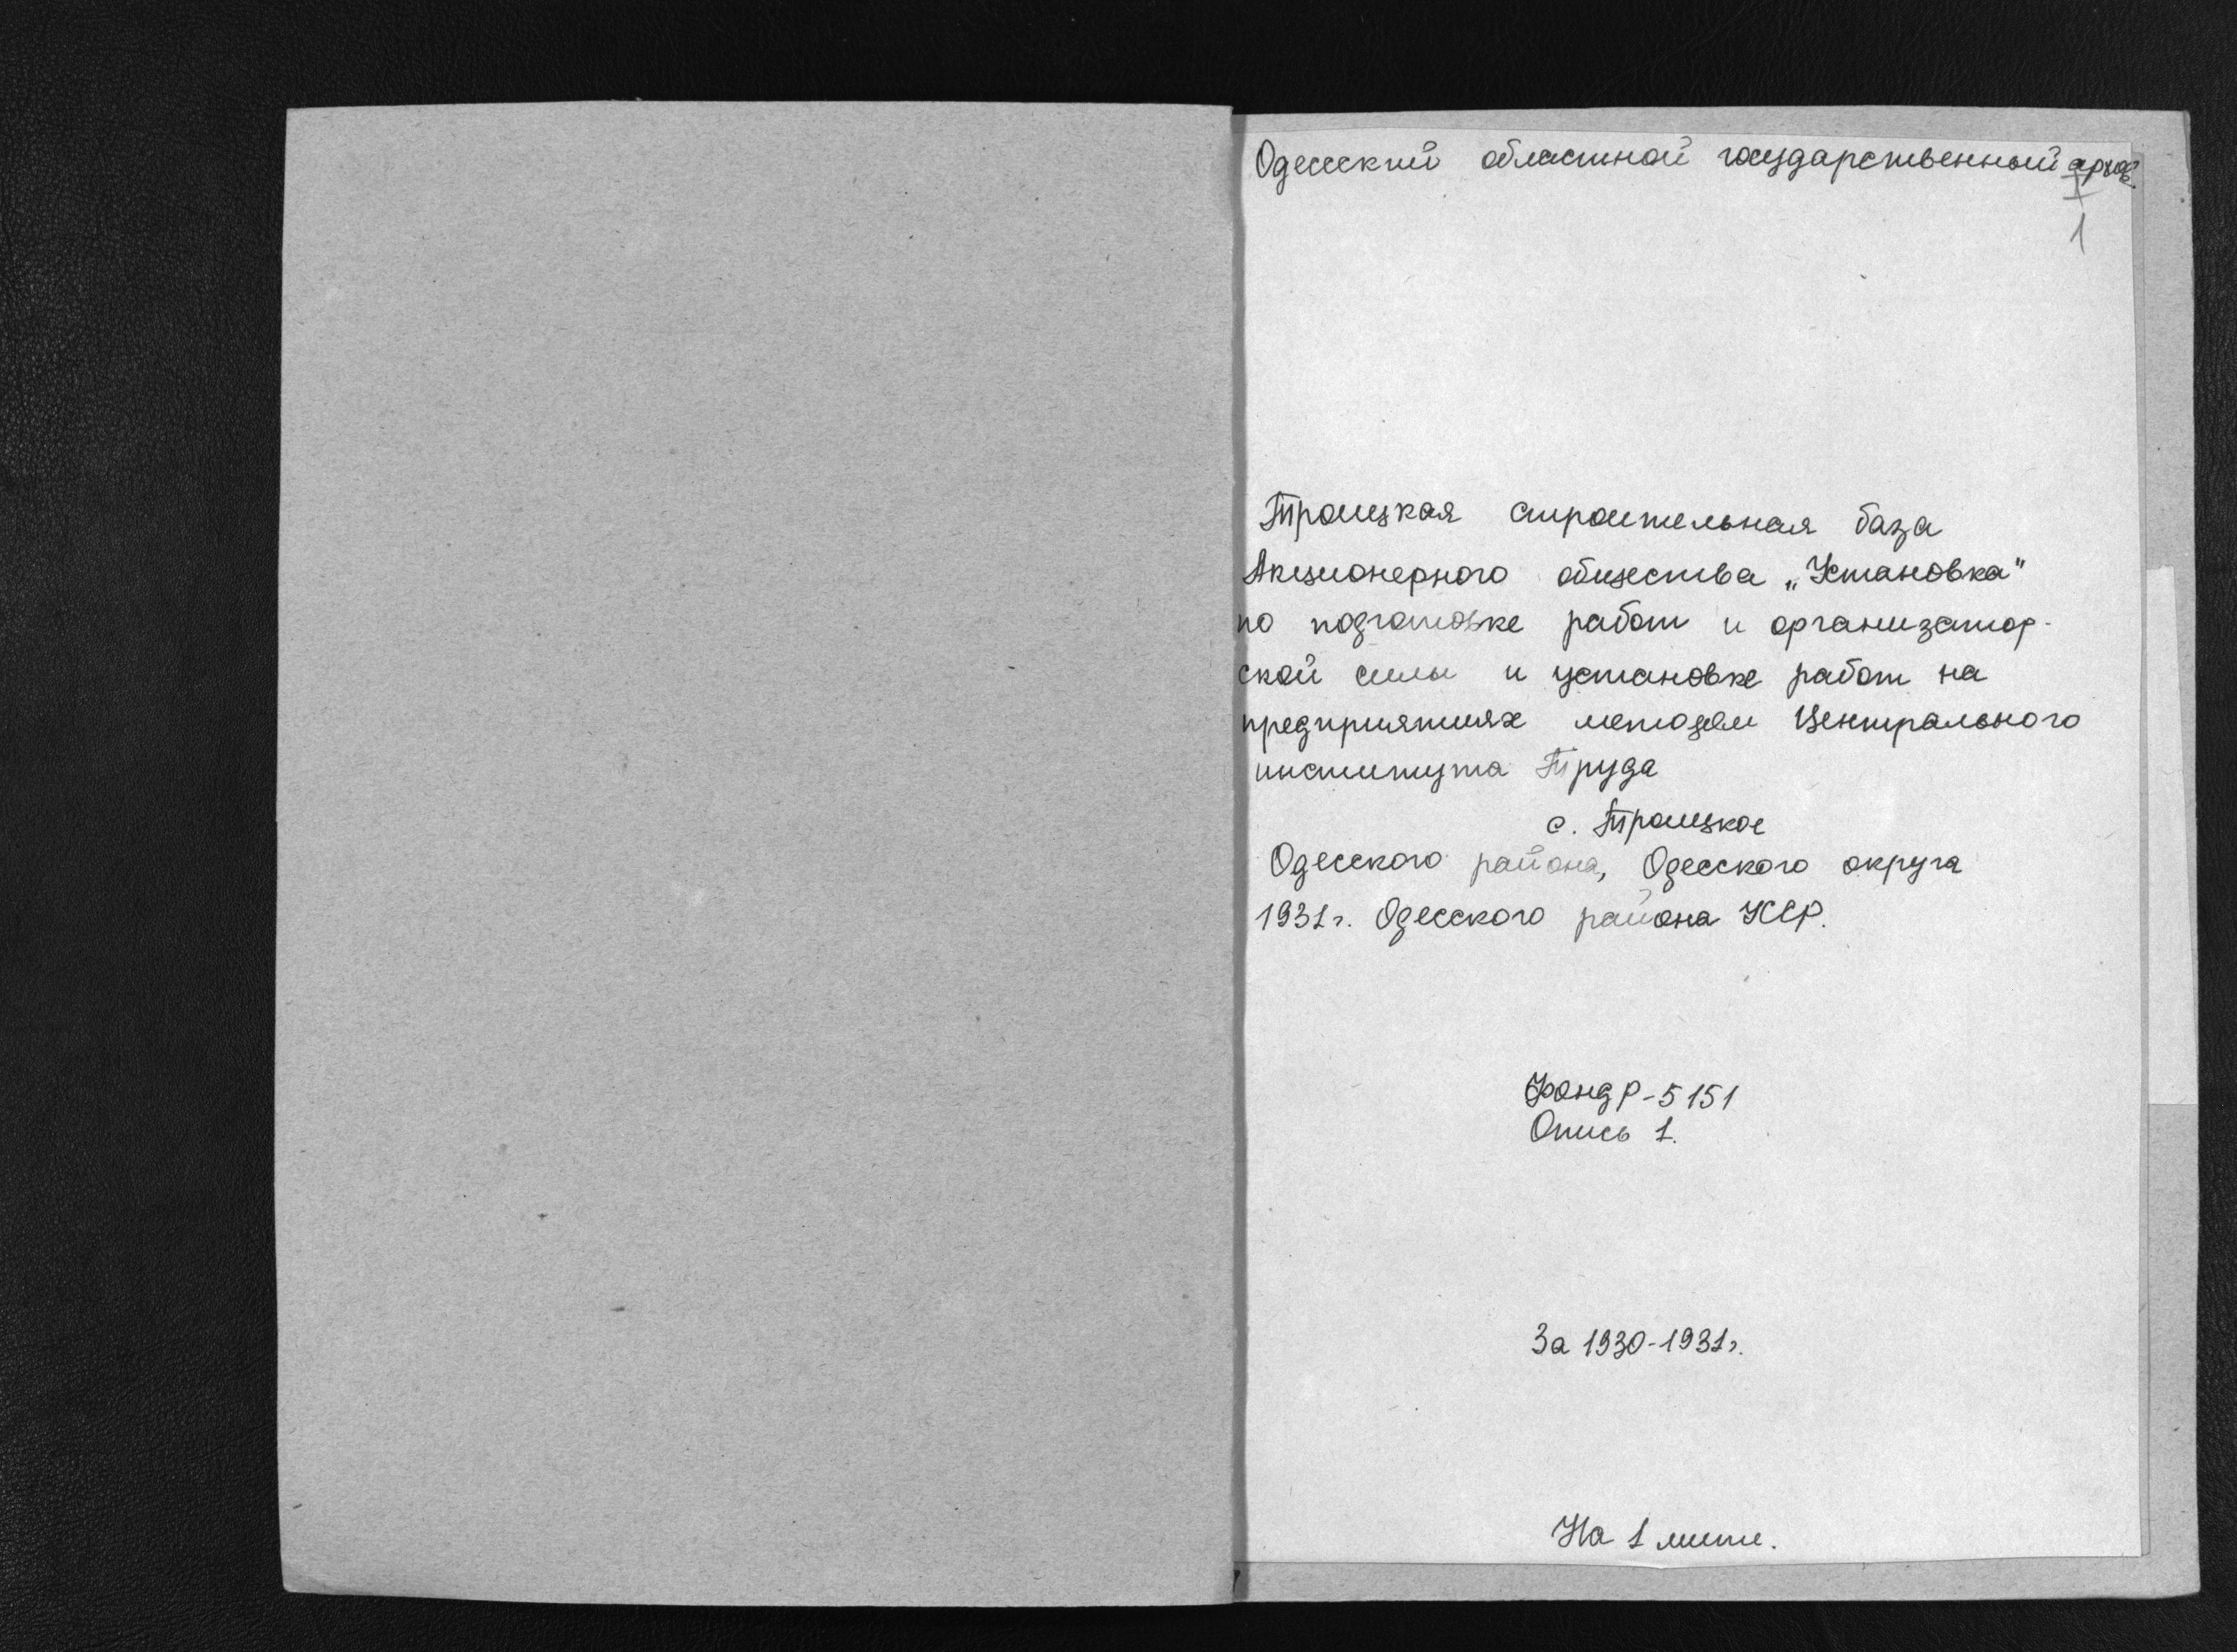 Одесский областной государственный архив.
1
1
Троицкая строительная база
Акционерного общества „Установка"
по подготовке работ и организатор-
ской силы и установке работ на
предприятиях методом Центрального
института Труда
с. Троицкое
Одесского района, Одесского округа
1931г. Одесского района УССР.
Фонд Р-5151
Опись 1.
За 1930-1931г.
На 1 листе.